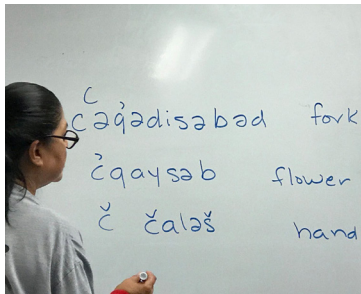 c
cəq̓ədisəbəd fork
c̓qaysəb flower
č čaləš hand